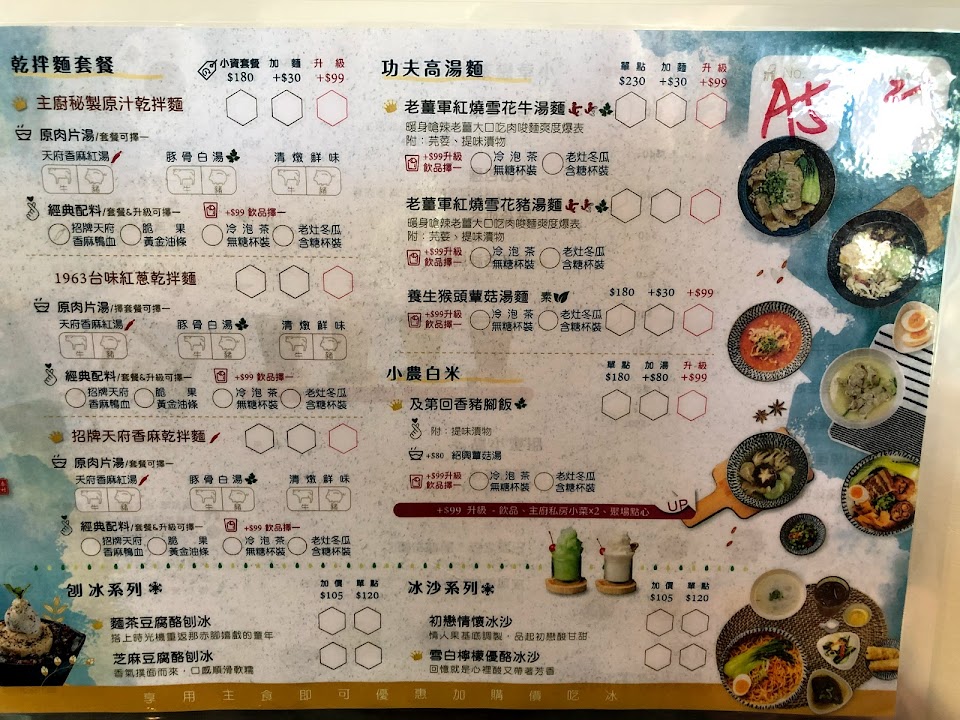 乾拌麵套餐
小資套餐 加麵 升級
$180 +$30 +$99
主廚秘製原汁乾拌麵
原肉片湯/套餐可擇一
天府香麻紅湯 豚骨白湯 清燉鮮味
牛 豬 牛 豬 牛 豬
經典配料/套餐&升級可擇一 +$99 飲品擇一
招牌天府香麻鴨血 脆果黃金油條 冷泡茶無糖杯裝 老灶冬瓜含糖杯裝
1963台味紅蔥乾拌麵
原肉片湯/擇套餐可擇一
天府香麻紅湯 豚骨白湯 清燉鮮味
牛 豬 牛 豬 牛 豬
經典配料/套餐&升級可擇一 +$99 飲品擇一
招牌天府香麻鴨血 脆果黃金油條 冷泡茶無糖杯裝 老灶冬瓜含糖杯裝
招牌天府香麻乾拌麵
原肉片湯/套餐可擇一
天府香麻紅湯 豚骨白湯 清燉鮮味
牛 豬 牛 豬 牛 豬
經典配料/套餐&升級可擇一 +$99 飲品擇一
招牌天府香麻鴨血 脆果黃金油條 冷泡茶無糖杯裝 老灶冬瓜含糖杯裝
功夫高湯麵
單點 加麵 升級
$230 +$30 +$99
老薑軍紅燒雪花牛湯麵
暖身嗆辣老薑大口吃肉唆麵爽度爆表
附：芫荽、提味漬物
+$99升級飲品擇一 冷泡茶無糖杯裝 老灶冬瓜含糖杯裝
老薑軍紅燒雪花豬湯麵
暖身嗆辣老薑大口吃肉唆麵爽度爆表
附：芫荽、提味漬物
+$99升級飲品擇一 冷泡茶無糖杯裝 老灶冬瓜含糖杯裝
養生猴頭蕈菇湯麵 素 $180 +$30 +$99
+$99升級飲品擇一 冷泡茶無糖杯裝 老灶冬瓜含糖杯裝
小農白米
單點 加湯 升級
$180 +$80 +$99
及第回香豬腳飯
附：提味漬物
+$80 紹興蕈菇湯
+$99升級飲品擇一 冷泡茶無糖杯裝 老灶冬瓜含糖杯裝
+$99 升級、飲品、主廚私房小菜×2、聚場點心 UP
No.
A5
刨冰系列
加價 單點
$105 $120
麵茶豆腐酪刨冰
搭上時光機重返那赤腳嬉戲的童年
芝麻豆腐酪刨冰
香氣撲面而來，口感順滑軟糯
冰沙系列
加價 單點
$105 $120
初戀情懷冰沙
情人果基底調製，品起初戀酸甘甜
雪白檸檬優酪冰沙
回憶就是心裡酸又帶著芳香
享用主食即可優惠加購價吃冰